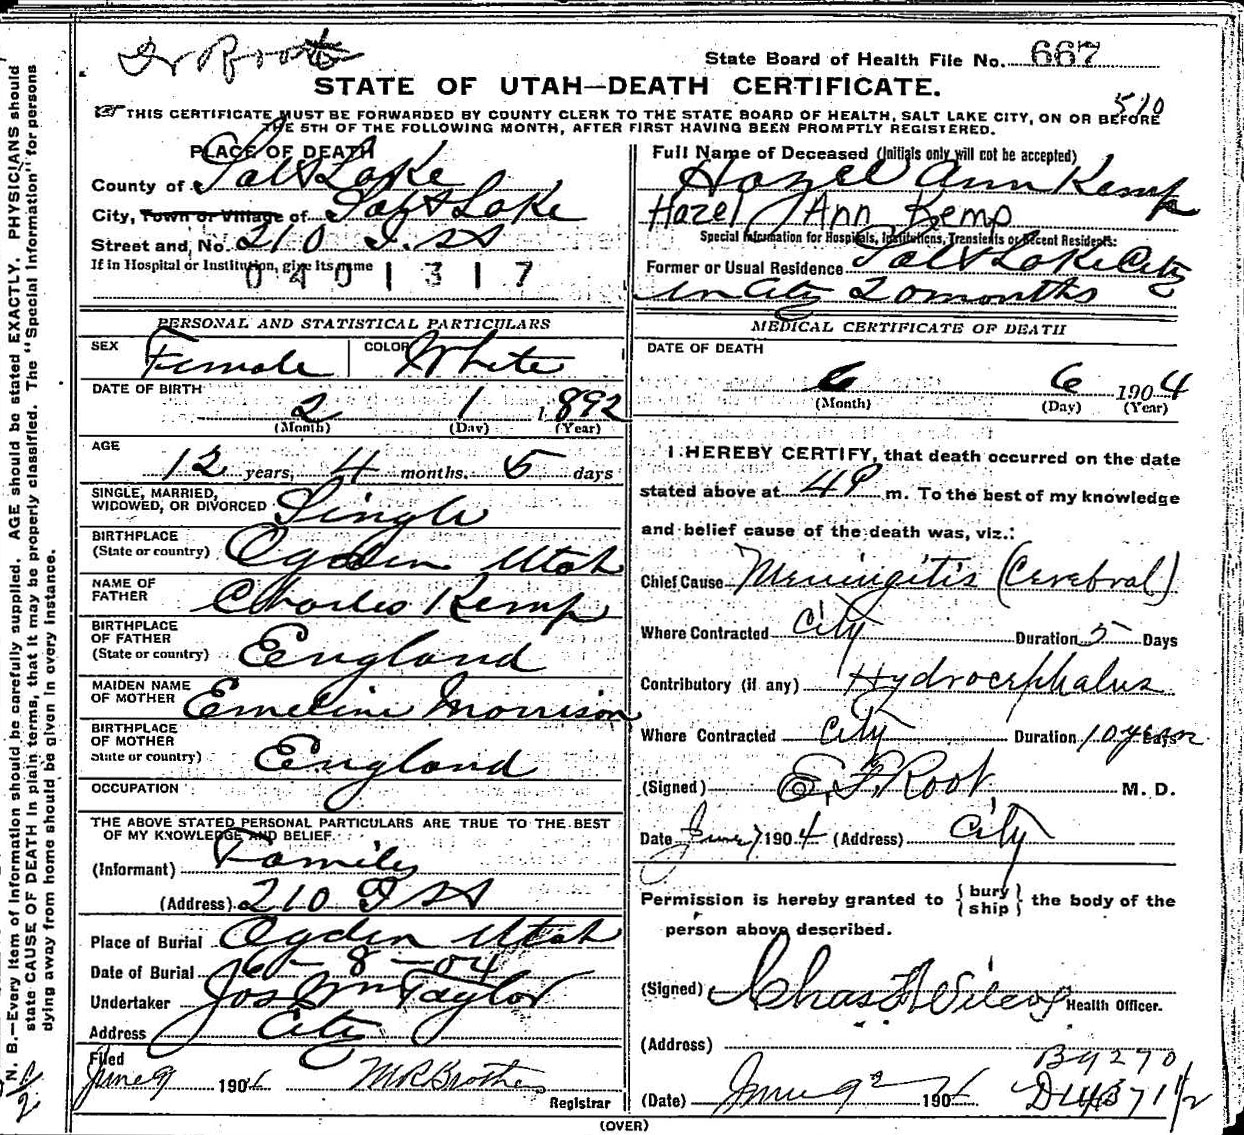 Dr Root
State Board of Health File No. 667
STATE OF UTAH—DEATH CERTIFICATE.
510
THIS CERTIFICATE MUST BE FORWARDED BY COUNTY CLERK TO THE STATE BOARD OF HEALTH, SALT LAKE CITY, ON OR BEFORE
THE 5TH OF THE FOLLOWING MONTH, AFTER FIRST HAVING BEEN PROMPTLY REGISTERED.
N. B.—Every item of information should be carefully supplied. AGE should be stated EXACTLY. PHYSICIANS should
state CAUSE OF DEATH in plain terms, that it may be properly classified. The "Special Information" for persons
dying away from home should be given in every instance.
PLACE OF DEATH
County of Salt Lake
City, Town or Village of Salt Lake
Street and No. 210 I. St
If in Hospital or Institution, give its name
0401317
PERSONAL AND STATISTICAL PARTICULARS
SEX Female COLOR White
DATE OF BIRTH
2 1 1892
(Month) (Day) (Year)
AGE
12 years, 4 months. 5 days
SINGLE, MARRIED,
WIDOWED, OR DIVORCED Single
BIRTHPLACE
(State or country) Ogden Utah
NAME OF
FATHER Charles Kemp
BIRTHPLACE
OF FATHER
(State or country) England
MAIDEN NAME
OF MOTHER Emeline Morrison
BIRTHPLACE
OF MOTHER
State or country) England
OCCUPATION
THE ABOVE STATED PERSONAL PARTICULARS ARE TRUE TO THE BEST
OF MY KNOWLEDGE AND BELIEF.
(Informant) Family
(Address) 210 I St
Place of Burial Ogden Utah
Date of Burial 6-8-04
Undertaker Jos Wm Taylor
Address City
Filed
June 9 1904 M R Brothers
Registrar
Full Name of Deceased (Initials only will not be accepted)
Hazel Ann Kemp
Hazel Ann Kemp
Special Information for Hospitals, Institutions, Transients or Recent Residents:
Former or Usual Residence Salt Lake City
In City 20 months
MEDICAL CERTIFICATE OF DEATH
DATE OF DEATH
6 6 1904
(Month) (Day) (Year)
I HEREBY CERTIFY, that death occurred on the date
stated above at 4 P m. To the best of my knowledge
and belief cause of the death was, viz.:
Chief Cause Meningitis (Cerebral)
Where Contracted City Duration 5 Days
Contributory (if any) Hydrocephalus
Where Contracted City Duration 10 years Days
(Signed) E. F. Root M. D.
Date June 7 1904 (Address) City
Permission is hereby granted to { bury
ship } the body of the
person above described.
(Signed) Chas F Wilcox Health Officer.
(Address)
B9270
(Date) June 9 1904
(OVER)